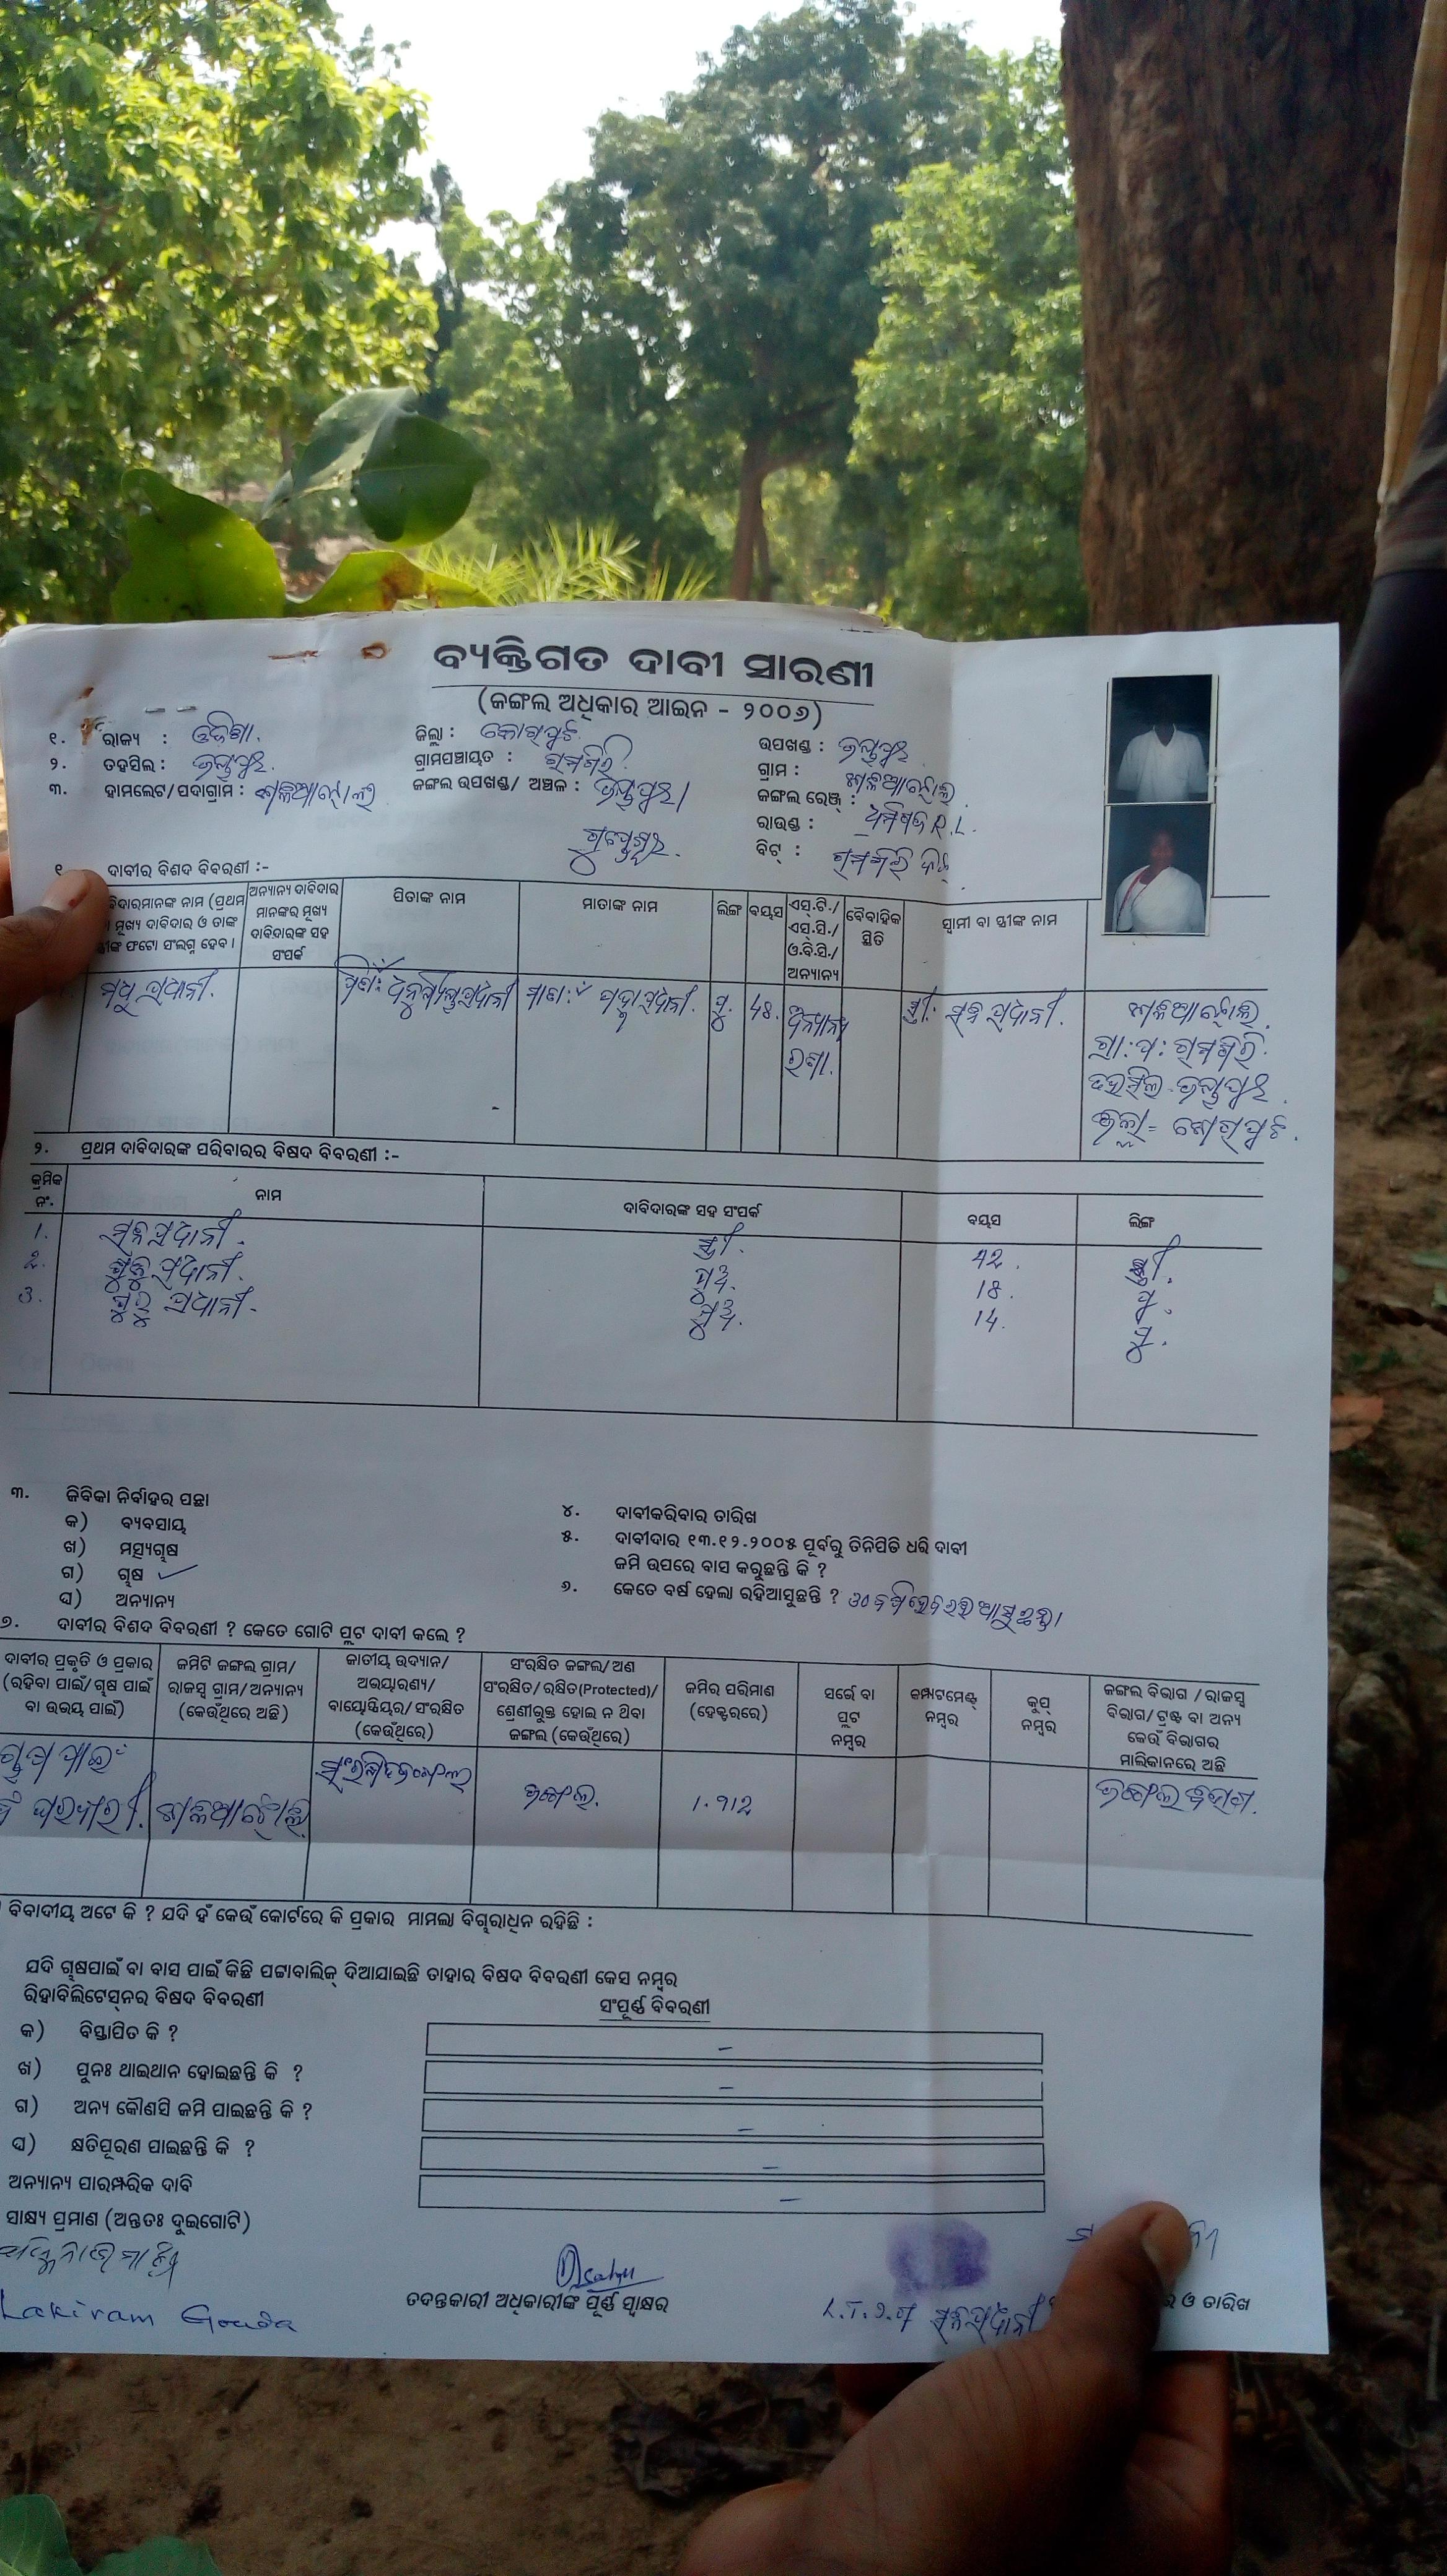 ବ୍ୟକ୍ତିଗତ ଦାବୀ ସାରଣୀ
(ଜଙ୍ଗଲ ଅଧିକାର ଆଇନ - ୨୦୦୬)
୧. ରାଜ୍ୟ : ଓଡିଶା. ଜିଲ୍ଲା : କୋରାପୁଟ ଉପଖଣ୍ଡ : ଜୟପୁର
୨. ତହସିଲ : ଜୟପୁର. ଗ୍ରାମପଞ୍ଚାୟତ : ରାମଗିରି ଗ୍ରାମ :
୩. ହାମଲେଟ/ପଦାଗ୍ରାମ : ଜଙ୍ଗଲ ଉପଖଣ୍ଡ/ ଅଞ୍ଚଳ : ଜୟପୁର। ଜଙ୍ଗଲ ରେଞ୍ଜ୍ :
ରାଉଣ୍ଡ : R.L.
ବିଟ୍ : ରାମଗିରି ବିଟ୍
୧. ଦାବୀର ବିଶଦ ବିବରଣୀ :-
ବିଦାରମାନଙ୍କ ନାମ (ପ୍ରଥମ ମୁଖ୍ୟ ଦାବିଦାର ଓ ତାଙ୍କ ଫଟୋ ସଂଲଗ୍ନ ହେବ।
ଅନ୍ୟାନ୍ୟ ଦାବିଦାର ମାନଙ୍କର ମୁଖ୍ୟ ଦାବିଦାରଙ୍କ ସହ ସଂପର୍କ
ପିତାଙ୍କ ନାମ ମାତାଙ୍କ ନାମ ଲିଙ୍ଗ ବୟସ ଏସ୍.ଟି./ ଏସ୍.ସି./ ଓ.ବି.ସି./ ଅନ୍ୟାନ୍ୟ ବୈବାହିକ ସ୍ଥିତି ସ୍ୱାମୀ ବା ସ୍ତ୍ରୀଙ୍କ ନାମ
ମଧୁ ପ୍ରଧାନୀ. ପ୍ରଧାନୀ ପଦ୍ମା ପ୍ରଧାନୀ. ପୁ. 48. ଅନ୍ୟାନ୍ୟ ସ୍ତ୍ରୀ: ପ୍ରଧାନୀ.
ଗ୍ରା:ପ: ରାମଗିରି.
ତହସିଲ-ଜୟପୁର.
ଜିଲ୍ଲା= କୋରାପୁଟ.
୨. ପ୍ରଥମ ଦାବିଦାରଙ୍କ ପରିବାରର ବିଷଦ ବିବରଣୀ :-
କ୍ରମିକ ନଂ. ନାମ ଦାବିଦାରଙ୍କ ସହ ସଂପର୍କ ବୟସ ଲିଙ୍ଗ
1. ପ୍ରଧାନୀ. ସ୍ତ୍ରୀ. 42. ସ୍ତ୍ରୀ.
2. ପ୍ରଧାନୀ. ପୁଅ. 18. ପୁ.
3. ପ୍ରଧାନୀ. ପୁଅ. 14. ପୁ.
୩. ଜିବିକା ନିର୍ବାହର ପନ୍ଥା
କ) ବ୍ୟବସାୟ
ଖ) ମତ୍ସ୍ୟଚାଷ
ଗ) ଚାଷ
ଘ) ଅନ୍ୟାନ୍ୟ
୪. ଦାବୀକରିବାର ତାରିଖ
୫. ଦାବୀଦାର ୧୩.୧୨.୨୦୦୫ ପୂର୍ବରୁ ତିନିପିଢି ଧରି ଦାବୀ
ଜମି ଉପରେ ବାସ କରୁଛନ୍ତି କି ?
୬. କେତେ ବର୍ଷ ହେଲା ରହିଆସୁଛନ୍ତି ?
୭. ଦାବୀର ବିଶଦ ବିବରଣୀ ? କେତେ ଗୋଟି ପ୍ଲଟ ଦାବୀ କଲେ ?
ଦାବୀର ପ୍ରକୃତି ଓ ପ୍ରକାର (ରହିବା ପାଇଁ/ଚାଷ ପାଇଁ ବା ଉଭୟ ପାଇଁ)
ଜମିଟି ଜଙ୍ଗଲ ଗ୍ରାମ/ ରାଜସ୍ୱ ଗ୍ରାମ/ଅନ୍ୟାନ୍ୟ (କେଉଁଥିରେ ଅଛି)
ଜାତୀୟ ଉଦ୍ୟାନ/ ଅଭୟାରଣ୍ୟ/ ବାୟୋସ୍ପିୟର/ସଂରକ୍ଷିତ (କେଉଁଥିରେ)
ସଂରକ୍ଷିତ ଜଙ୍ଗଲ/ଅଣ ସଂରକ୍ଷିତ/ରକ୍ଷିତ(Protected)/ ଶ୍ରେଣୀଭୁକ୍ତ ହୋଇ ନ ଥିବା ଜଙ୍ଗଲ (କେଉଁଥିରେ)
ଜମିର ପରିମାଣ (ହେକ୍ଟରରେ)
ସର୍ଭେ ବା ପ୍ଲଟ ନମ୍ବର
କମ୍ପାଟମେଣ୍ଟ ନମ୍ବର
କୁପ୍ ନମ୍ବର
ଜଙ୍ଗଲ ବିଭାଗ /ରାଜସ୍ୱ ବିଭାଗ/ଟ୍ରଷ୍ଟ ବା ଅନ୍ୟ କେଉଁ ବିଭାଗର ମାଲିକାନରେ ଅଛି
ଚାଷ ପାଇଁ ଜଙ୍ଗଲ. 1.912 ଜଙ୍ଗଲ ବିଭାଗ.
ବିବାଦୀୟ ଅଟେ କି ? ଯଦି ହଁ କେଉଁ କୋର୍ଟରେ କି ପ୍ରକାର ମାମଲା ବିଚାରାଧିନ ରହିଛି :
ଯଦି ଚାଷପାଇଁ ବା ବାସ ପାଇଁ କିଛି ପଟ୍ଟାବାଲିକ୍ ଦିଆଯାଇଛି ତାହାର ବିଷଦ ବିବରଣୀ କେସ ନମ୍ବର
ରିହାବିଲିଟେସ୍‌ନର ବିଷଦ ବିବରଣୀ ସଂପୂର୍ଣ୍ଣ ବିବରଣୀ
କ) ବିସ୍ତାପିତ କି ? –
ଖ) ପୁନଃ ଥାଇଥାନ ହୋଇଛନ୍ତି କି ? –
ଗ) ଅନ୍ୟ କୌଣସି ଜମି ପାଇଛନ୍ତି କି ? –
ଘ) କ୍ଷତିପୂରଣ ପାଇଛନ୍ତି କି ? –
ଅନ୍ୟାନ୍ୟ ପାରମ୍ପରିକ ଦାବି –
ସାକ୍ଷ୍ୟ ପ୍ରମାଣ (ଅନ୍ତତଃ ଦୁଇଗୋଟି)
Lakiram Gouda
ତଦନ୍ତକାରୀ ଅଧିକାରୀଙ୍କ ପୂର୍ଣ୍ଣ ସ୍ୱାକ୍ଷର
L.T.I. of ପ୍ରଧାନୀ
ଓ ତାରିଖ